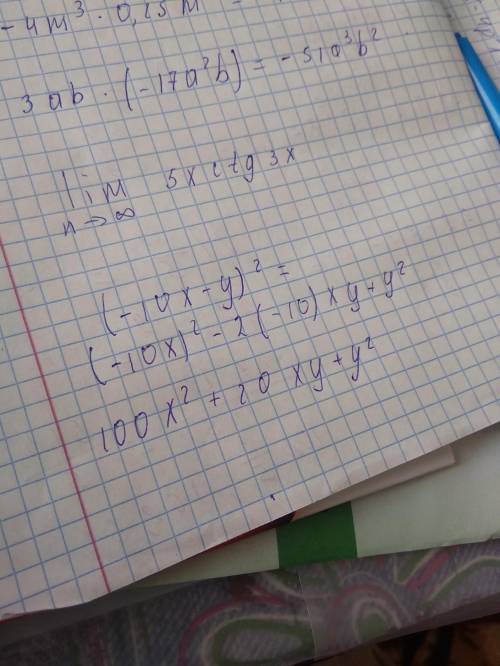 - 4m³ · 0,25m
3ab · (-17a²b) = -51a³b²
lim 5x ctg 3x
n→∞
(-10x-y)² =
(-10x)² - 2(-10)xy+y²
100x² + 20xy+y²